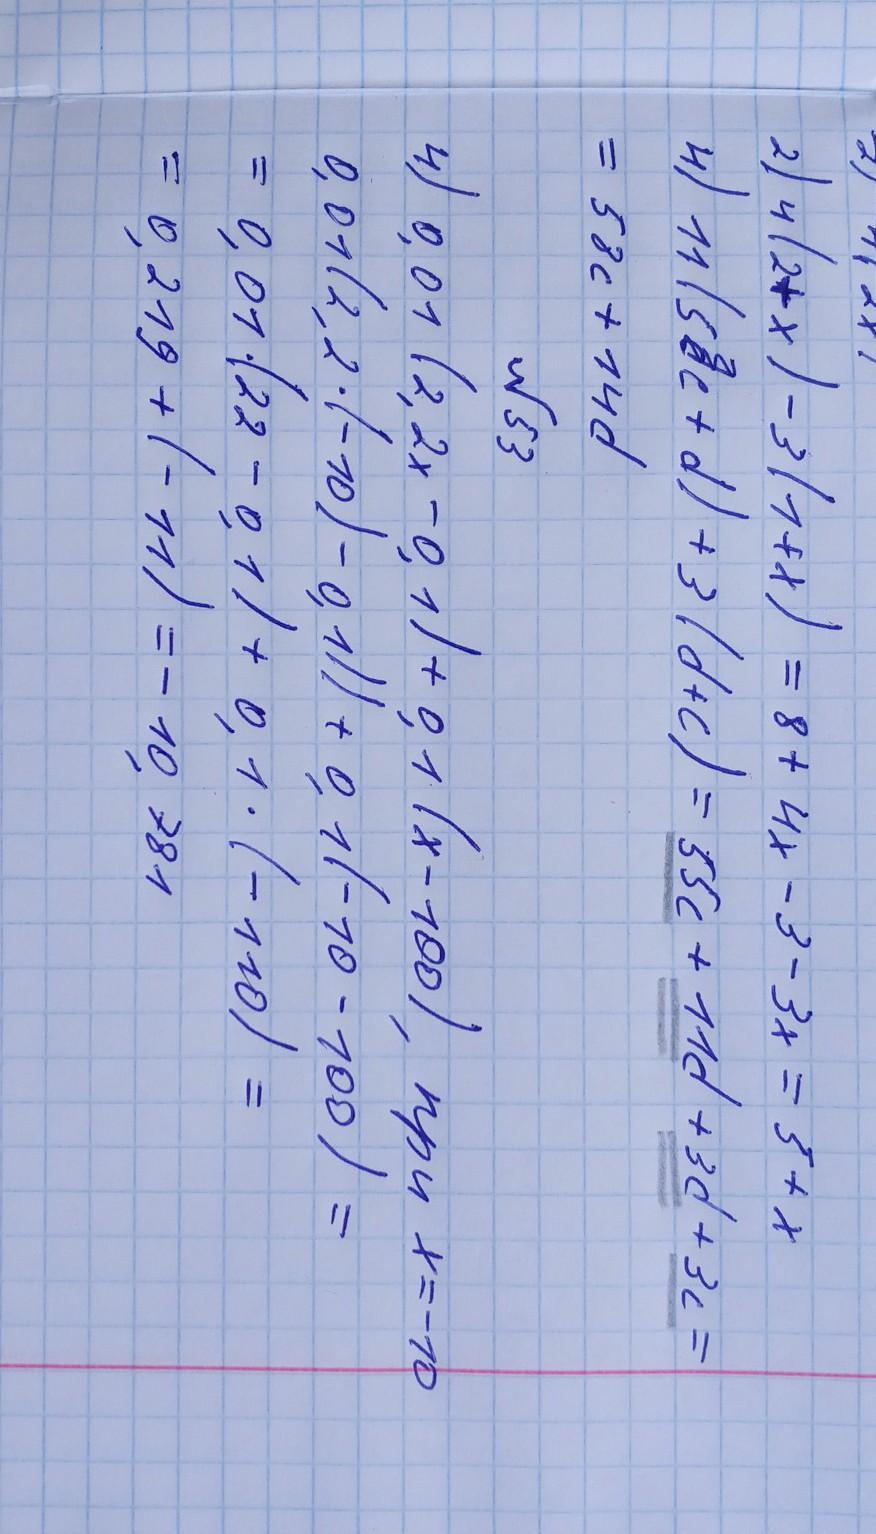 2) 4(2+x)-3(1+x) = 8+4x-3-3x = 5+x
4) 11(5c+d)+3(d+c) = 55c+11d+3d+3c =
= 58c+14d
№53
4) 0,01(2,2x-0,1)+0,1(x-100), при x=-10
0,01(2,2·(-10)-0,1))+0,1(-10-100) =
= 0,01·(22-0,1)+0,1·(-110) =
= 0,219+(-11) = -10,781